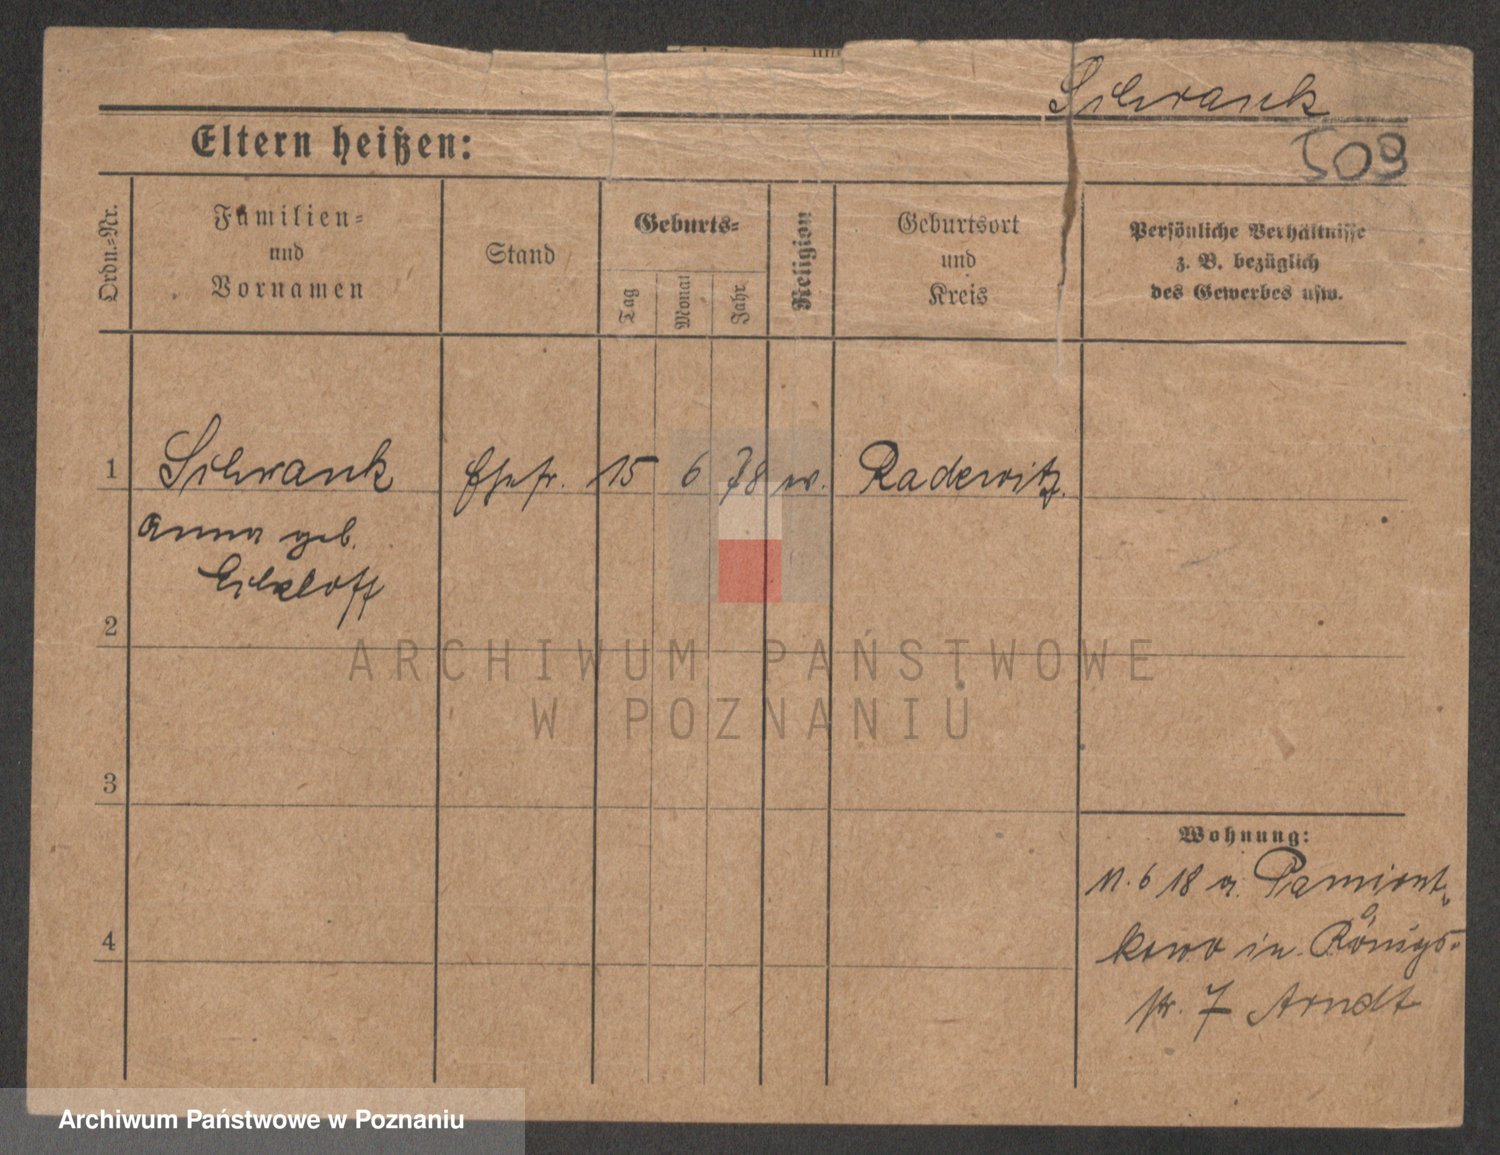 Schrank
509
Eltern heißen:
Ordn.=Nr.
Familien=
und
Vornamen
Stand
Geburts=
Tag
Monat
Jahr
Religion
Geburtsort
und
Kreis
Persönliche Verhältnisse
z. B. bezüglich
des Gewerbes usw.
1 Schrank Ehefr. 15 6 78 ev. Radewitz.
Anna geb.
2
3
4
Wohnung:
11. 6 18 a. Pamiont-
kowo in Königs-
str. 7 Arndt
ARCHIWUM PAŃSTWOWE
W POZNANIU
Archiwum Państwowe w Poznaniu